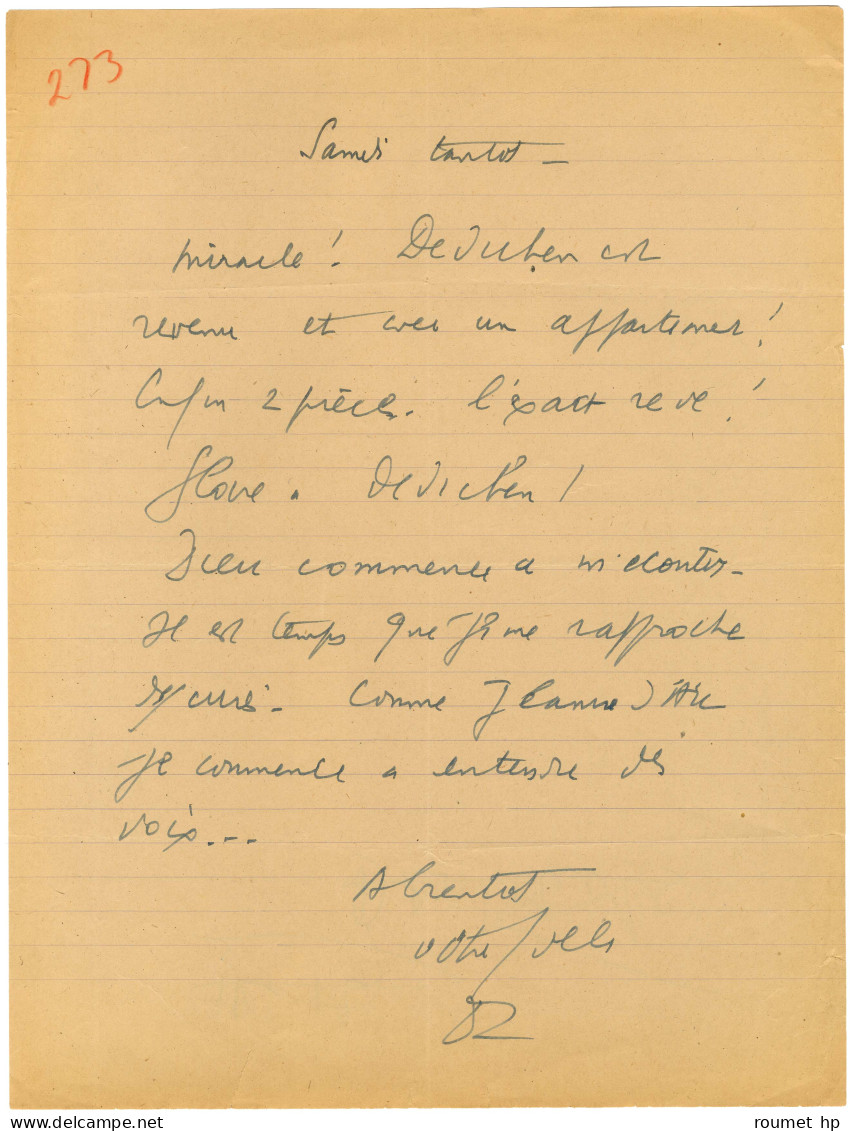 273
Samedi tantot –
miracle ! Devichen est
revenu et avec un appartement !
Enfin 2 pièces. l'exact reve !
Gloire a Devichen !
Dieu commence a m'ecouter –
Il est temps que je me rapproche
Comme Jeanne d'Arc
Je commence a entendre des
voix ...
A bientot
votre
roumet hp
www.delcampe.net